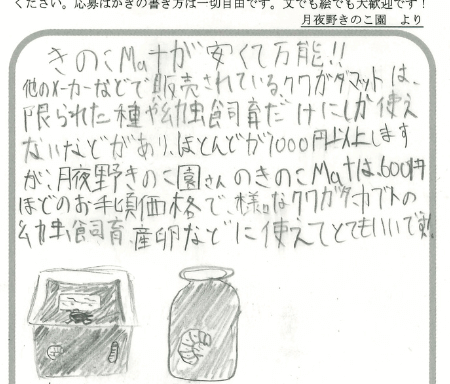 ください。応募はがきの書き方は一切自由です。文でも絵でも大歓迎です！
月夜野きのこ園　より
きのこMatが安くて万能!!
他のメーカーなどで販売されているクワガタマットは、
限られた種や幼虫飼育だけにしか使え
ないなどがあり、ほとんどが1000円以上します
が、月夜野きのこ園さんのきのこMatは、600円
ほどのお手頃価格で、様々なクワガタ・カブトの
幼虫飼育、産卵などに使えてとてもいいです!!